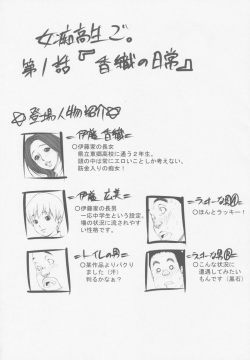 女痴高生ご。
第1話『香織の日常』
登場人物紹介
伊藤香織
○伊藤家の長女
県立東郷高校に通う2年生。
頭の中は常にエロいことしか考えない、
筋金入りの痴女！
伊藤広美
○伊藤家の長男
一応中学生という設定。
場の状況に流されやす
い性格です。
ラッキーな男①
○ほんとラッキー！
トイレの男
○某作品よりパクり
ました（汗）
判るかなぁ？
ラッキーな男②
○こんな状況に
遭遇してみたい
もんです（墓石）